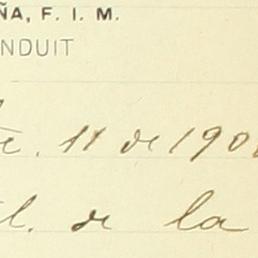 ÑA, F. I. M.
NDUIT
te. 11 de 190
l. de la